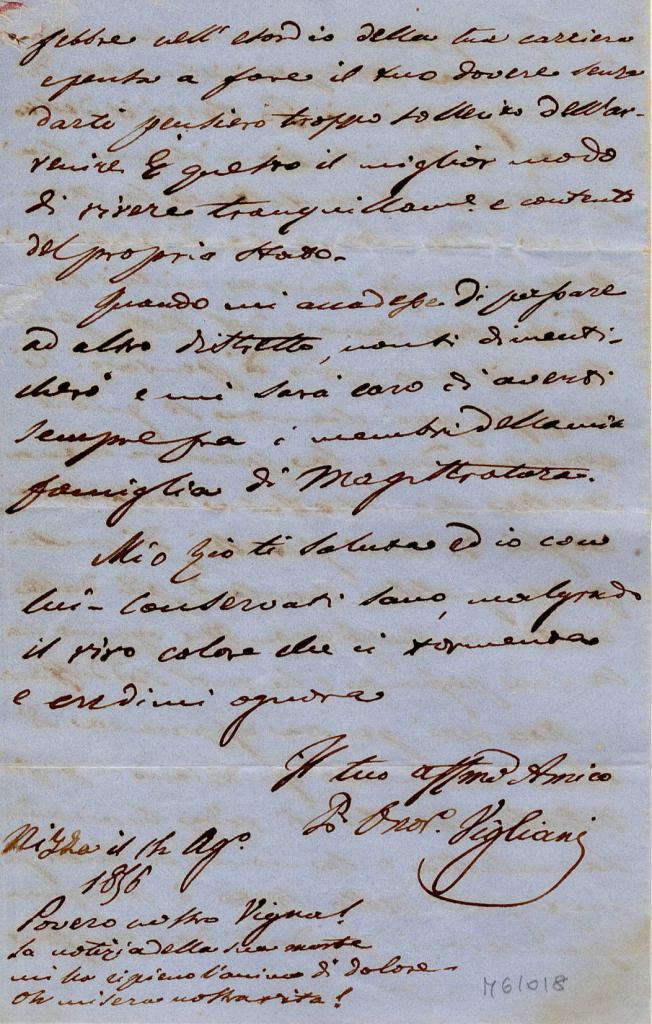 febbre nell' esordio della tua carriera
e pensa a fare il tuo dovere senza
darti pensiero troppo sollecito dell'av-
venire. È questo il miglior modo
di vivere tranquillame. e contento
del proprio stato.
Quando mi accadesse di passare
ad altro distretto, non ti dimenti-
cherò e mi sarà caro di averti
sempre fra i membri della mia
famiglia di Magistratura.
Mio zio ti saluta ed io con
lui - Conservati sano, malgrado
il vivo calore che ci tormenta
e credimi ognora
Il tuo affmo Amico
P. Onor. Vigliani
Nizza il Ag.
1856
Povero nostro Vigna!
La notizia della sua morte
mi ha ripieno l'anima di dolore
Oh misera nostra vita!
M61018